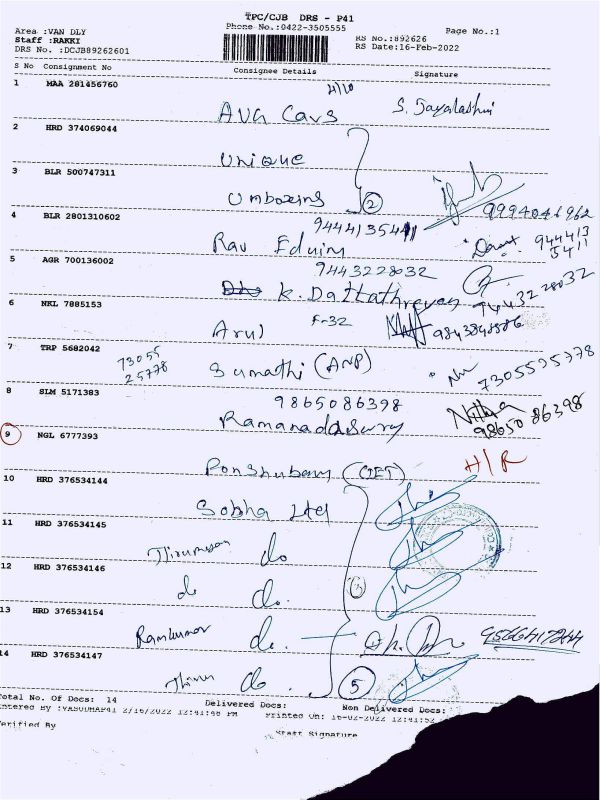 TPC/CJB DRS - P41
Phone No.:0422-3505555
Page No.:1
Area :VAN DLY
Staff :RAKKI
DRS No. :DCJB89262601
RS No.:892626
RS Date:16-Feb-2022
S No Consignment No Consignee Details Signature
1 MAA 281456760
AVG Cars
2 HRD 374069044
Unique
3 BLR 500747311
Umboxens 2
9994046962
4 BLR 2801310602
9444135411
944413
5411
5 AGR 700136002
9443228032
K. Dattathreyan 9443228032
6 NKL 7885153
Arul F-32
7 TRP 5682042
73055
25778
Sumathi (ANP) 7305525778
8 SLM 5171383
9865086398
Nithya
9865086398
9 NGL 6777393
H/R
10 HRD 376534144
Sobha Ltd
11 HRD 376534145
do
12 HRD 376534146
do do.
13 HRD 376534154
Ramkumar do.
14 HRD 376534147
do. 5
Total No. Of Docs: 14 Delivered Docs: Non Delivered Docs:
Entered By :VASUDHAP41 2/16/2022 12:41:48 PM Printed On: 16-02-2022 12:41:52
Verified By Staff Signature